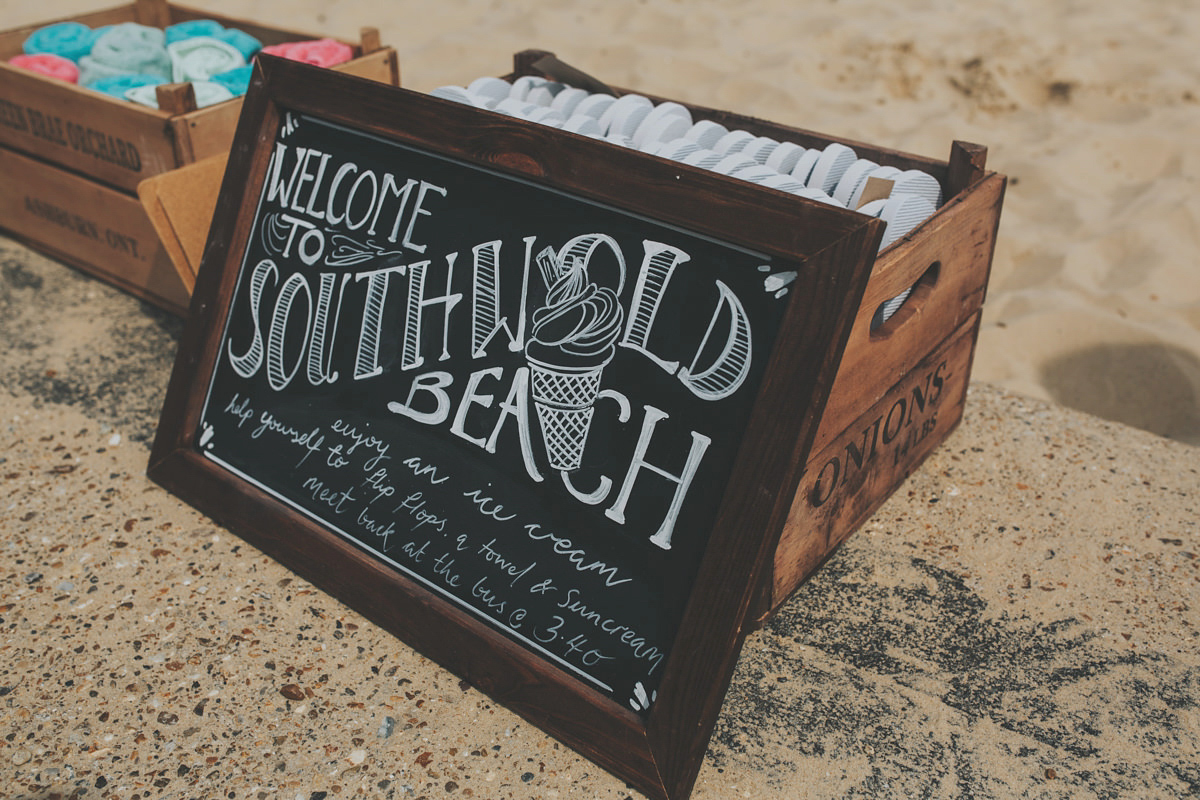 GREEN BRAE ORCHARD
ASHBURN, ONT.
WELCOME
TO
SOUTHWOLD
BEACH
enjoy an ice cream
help yourself to flip flops, a towel & Suncream
meet back at the bus @ 3.40
ONIONS
LBS